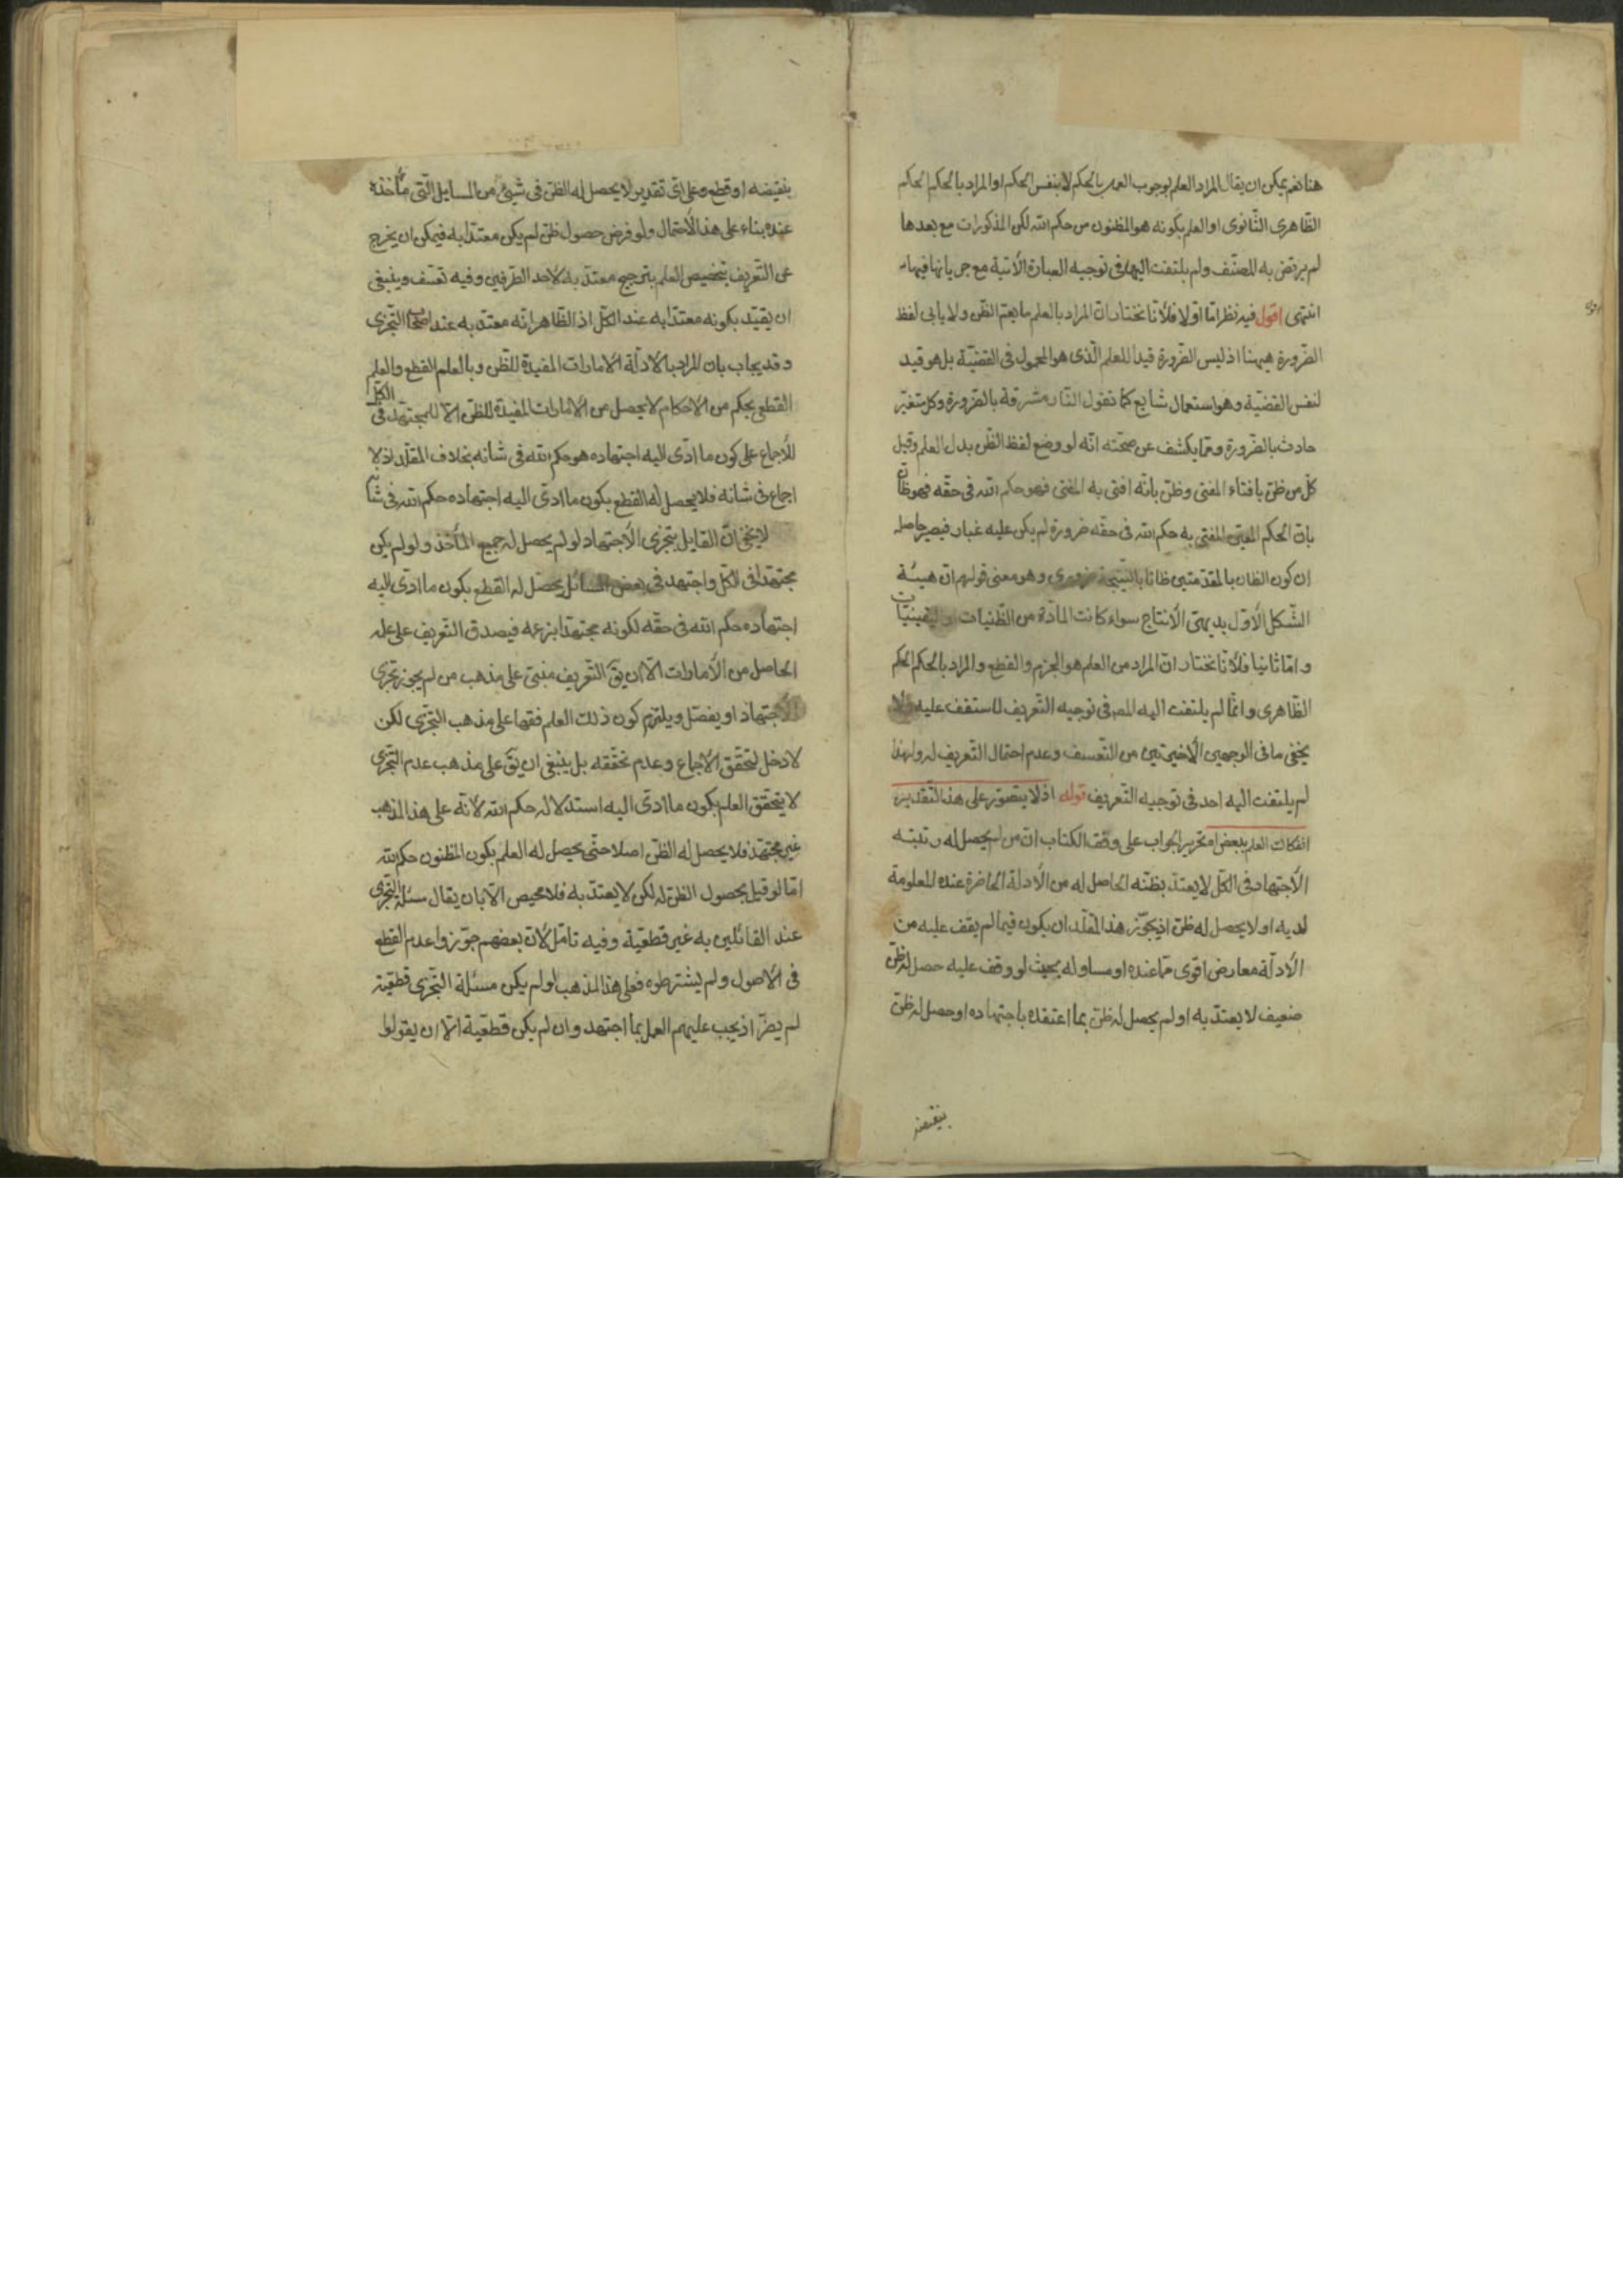 هنا نعم يمكن ان يقال المراد العلم بوجوب العمل بالحكم لا بنفس الحكم او المراد بالحكم الحكم
الظاهرى الثانوى او العلم بكونه هو المظنون من حكم الله لكن المذكورات مع بعدها
لم يرتض به المصنّف ولم يلتفت اليها فى توجيه العبارة الآتية مع جريانها فيها
انتهى اقول فيه نظر امّا اولا فلأنّا نختار انّ المراد بالعلم ما يعمّ الظن ولا يأبى لفظ
الضّرورة هيهنا اذ ليس الضّرورة قيدا للعلم الّذى هو المحمول فى القضيّة بل هو قيد
لنفس القضيّة وهو استعمال شايع كما تقول النّار مشرقة بالضّرورة وكل متغيّر
حادث بالضّرورة وممّا يكشف عن صحّته انّه لو وضع لفظ الظّن بدل العلم وقيل
كلّ من ظنّ بافتاء المفتى وظنّ بانّه افتى به المفتى فهو حكم الله فى حقّه فهو ظانّ
بانّ الحكم المفتى به حكم الله فى حقّه ضرورة لم يكن عليه غبار فيصير حاصله
ان كون الظان بالمقدّمتين ظانا بالنّتيجة ضرورى وهو معنى قولهم انّ هيئة
الشّكل الأوّل بديهىّ الأنتاج سواء كانت المادّة من الظّنيات او اليقينيّات
وامّا ثانيا فلأنّا نختار انّ المراد من العلم هو الجزم والقطع والمراد بالحكم الحكم
الظّاهرى وانّما لم يلتفت اليه المص فى توجيه التّعريف لما ستقف عليه ولا
يخفى ما فى الوجهين الأخيرتين من التّعسف وعدم احتمال التّعريف له ولهذا
لم يلتفت اليه احد فى توجيه التّعريف قوله اذ لا يتصوّر على هذا التّقدير
انفكاك العلم ببعض امـ تحرير الجواب على وفق الكتاب انّ من لم يحصل له رتبته
الأجتهاد فى الكلّ لا يعتدّ بظنّه الحاصل له من الأدلة الحاضرة عنده المعلومة
لديه او لا يحصل له ظن اذ يجوّز هذا المقلّد ان يكون فيما لم يقف عليه من
الأدلّة معارض اقوى ممّا عنده او مساو له بحيث لو وقف عليه حصل له ظنّ
ضعيف لا يعتدّ به او لم يحصل له ظنّ بما اعتقده باجتهاده او حصل له ظنّ
بنقيضه
بنقيضه او قطع وعلى اىّ تقدير لا يحصل له الظنّ فى شيئ من المسايل الّتى مأخذه
عنده بناء على هذا الأحتمال ولو فرض حصول ظنّ لم يكن معتدّا به فيمكن ان يخرج
عن التّعريف بتخصيص العلم بترجيح معتدّ به لأحد الطّرفين وفيه تعسّف وينبغى
ان يقيّد بكونه معتدّا به عند الكلّ اذ الظّاهر انّه معتدّ به عند اصحاب التّجزى
وقد يجاب بان المراد بالادلّة الامارات المفيدة للظّن وبالعلم القطع والعلم
القطعى بحكم من الاحكام لا يحصل من الأمارات المفيدة للظنّ الاّ للمجتهد فى الكلّ
للأجماع على كون ما ادّى اليه اجتهاده هو حكم الله فى شانه بخلاف المقلّد اذ لا
اجماع فى شانه فلا يحصل له القطع بكون ما ادّى اليه اجتهاده حكم الله فى شانه
لا يخفى انّ القايل بتجزى الأجتهاد لو لم يحصل له جميع المأخذ ولو لم يكن
مجتهدا فى الكلّ واجتهد فى بعض المسائل يحصل له القطع بكون ما ادّى اليه
اجتهاده حكم الله فى حقّه لكونه مجتهدا بزعمه فيصدق التّعريف على علمه
الحاصل من الأمارات الاّ ان يقّ التّعريف مبنىّ على مذهب من لم يجوز تجزى
الأجتهاد او يفصّل ويلتزم كون ذلك العلم فقها على مذهب التجزّى لكن
لا دخل لتحقّق الأجماع وعدم تحققه بل ينبغى ان يقّ على مذهب عدم التّجزى
لا يتحقّق العلم بكون ما ادّى اليه استدلاله حكم الله لأنّه على هذا المذهب
غير مجتهد فلا يحصل له الظنّ اصلا حتّى يحصل له العلم بكون المظنون حكم الله
امّا لو قيل بحصول الظنّ له لكن لا يعتدّ به فلا محيص الاّ بان يقال مسئلة التّجزى
عند القائلين به غير قطعيّة وفيه تامّل لأنّ بعضهم جوّزوا عدم القطع
فى الأصول ولم يشترطوه فعلى هذا المذهب لو لم يكن مسئلة التّجزى قطعيّة
لم يضرّ اذ يجب عليهم العمل بما اجتهد وان لم يكن قطعيّة الاّ ان يقولوا